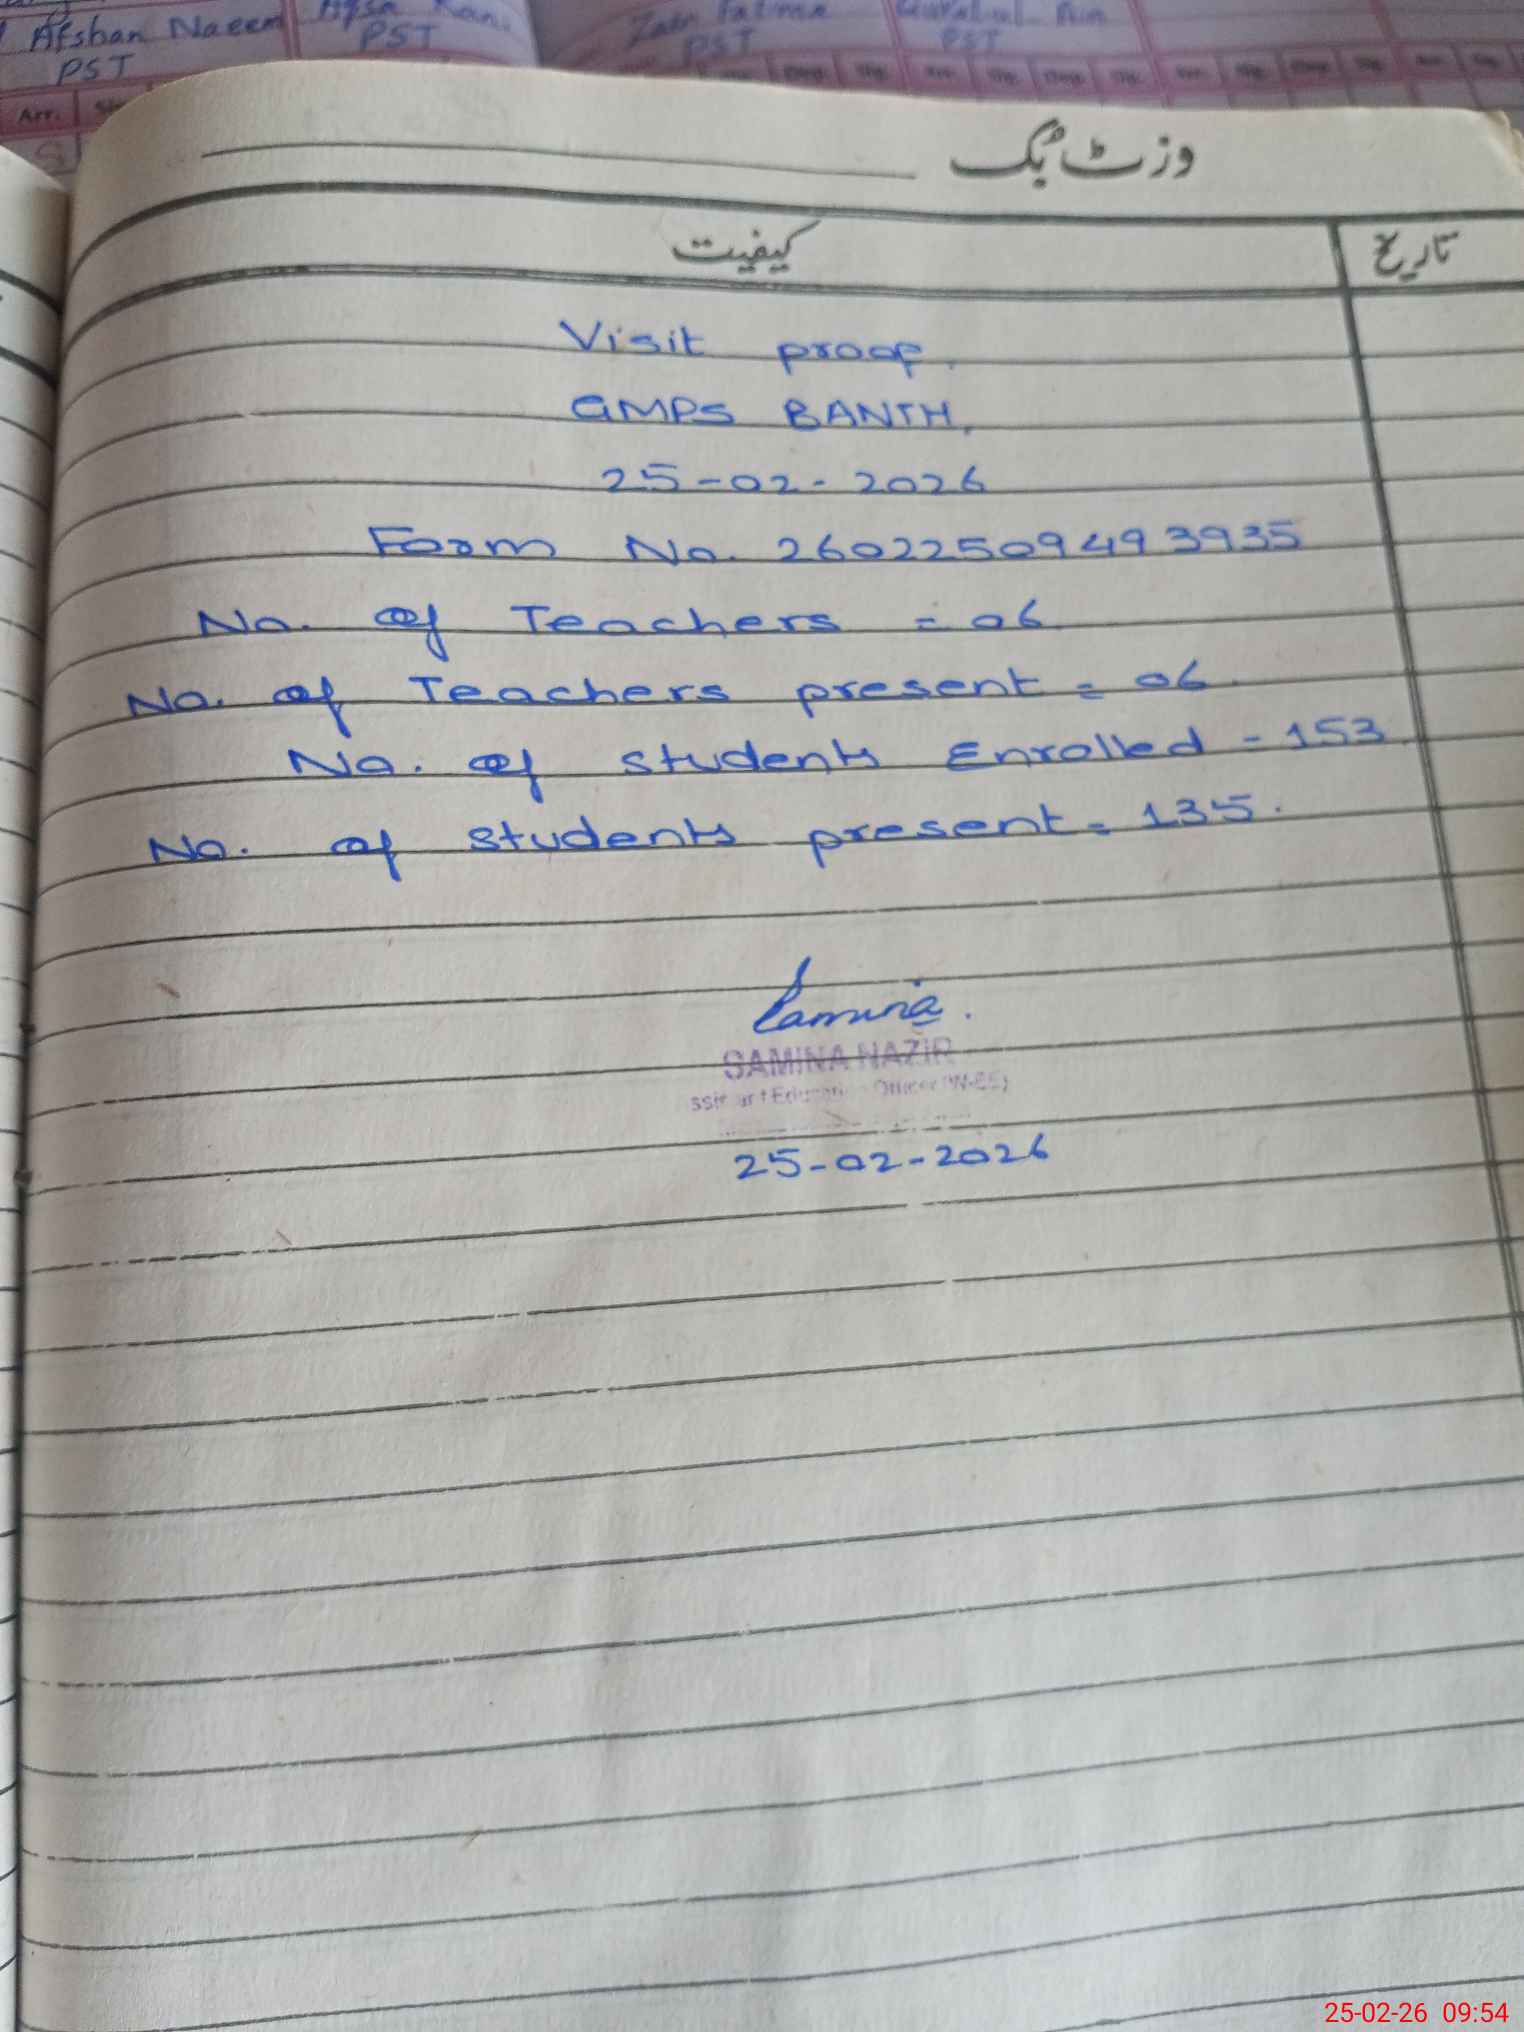 Afshan Naeem
PST
PST
Zain Fatima
PST
PST
Arr.
وزٹ بُک
کیفیت
تاریخ
Visit proof.
GMPS BANTH.
25-02-2026
Form No. 26022509493935
No. of Teachers = 06
No. of Teachers present = 06
No. of students Enrolled - 153
No. of students present = 135.
Samina.
SAMINA NAZIR
25-02-2026
25-02-26 09:54